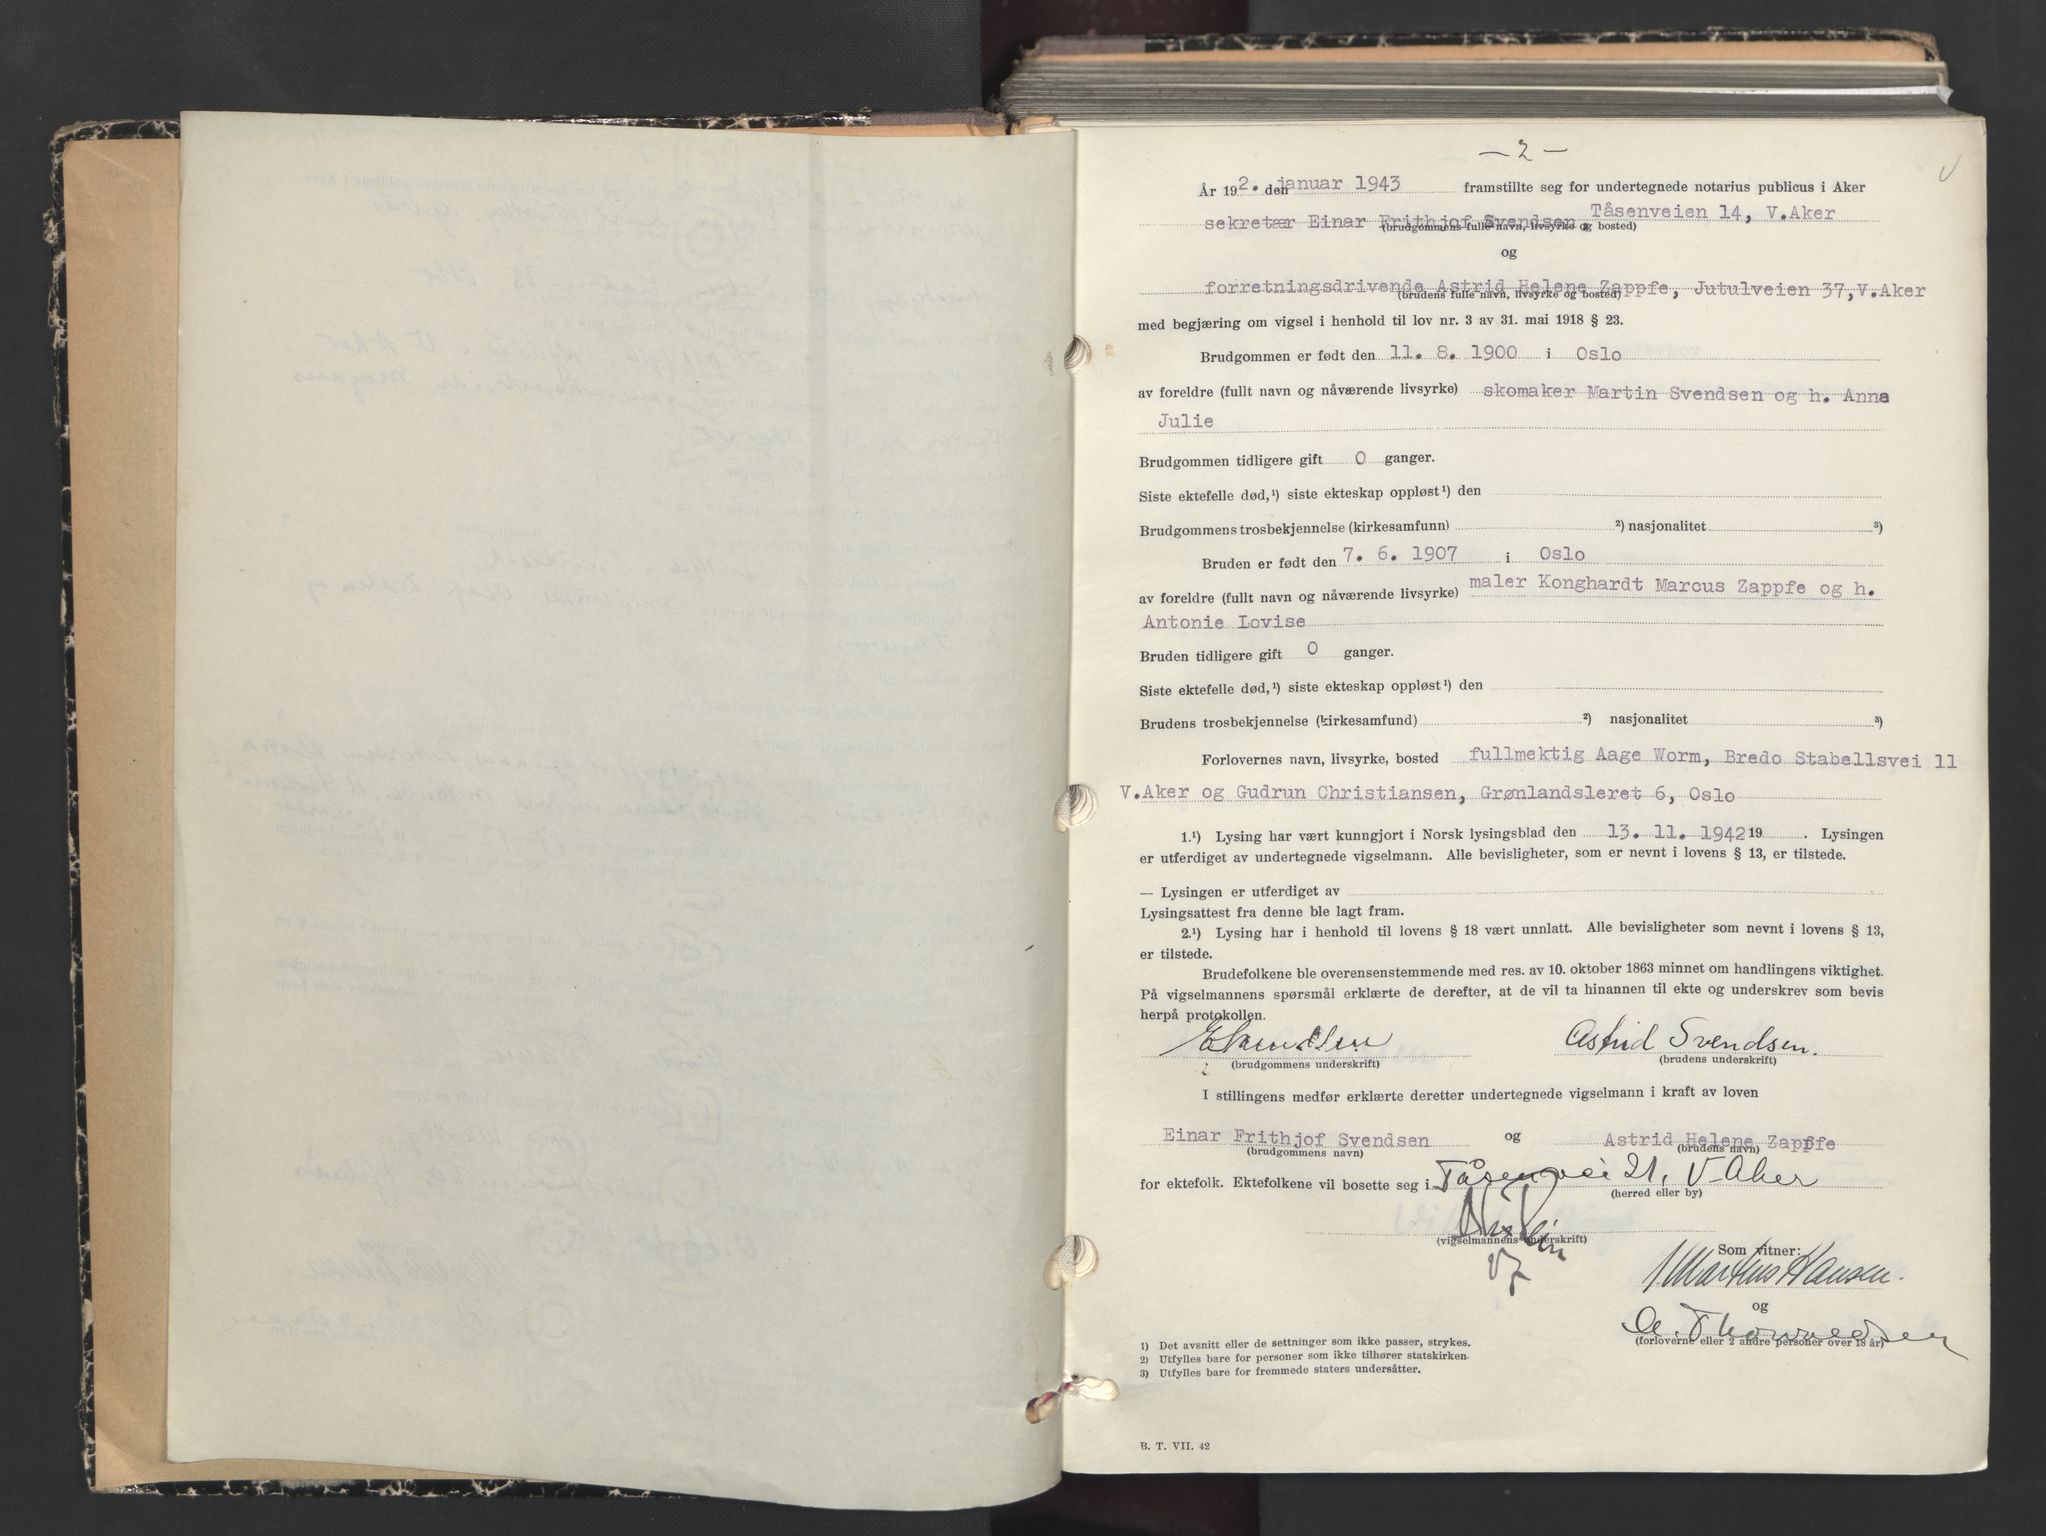 — 2 —
År 19 2. den januar 1943 framstillte seg for undertegnede notarius publicus i Aker
sekretær Einar Frithjof Svendsen, Tåsenveien 14, V.Aker
(brudgommens fulle navn, livsyrke og bosted)
og
forretningsdrivende Astrid Helene Zappfe, Jutulveien 37, V.Aker
(brudens fulle navn, livsyrke og bosted)
med begjæring om vigsel i henhold til lov nr. 3 av 31. mai 1918 § 23.
Brudgommen er født den 11. 8. 1900 i Oslo
av foreldre (fullt navn og nåværende livsyrke) skomaker Martin Svendsen og h. Anna
Julie
Brudgommen tidligere gift 0 ganger.
Siste ektefelle død,¹) siste ekteskap oppløst¹) den
Brudgommens trosbekjennelse (kirkesamfunn) ²) nasjonalitet ³)
Bruden er født den 7. 6. 1907 i Oslo
av foreldre (fullt navn og nåværende livsyrke) maler Konghardt Marcus Zappfe og h.
Antonie Lovise
Bruden tidligere gift 0 ganger.
Siste ektefelle død,¹) siste ekteskap oppløst¹) den
Brudens trosbekjennelse (kirkesamfund) ²) nasjonalitet ³)
Forlovernes navn, livsyrke, bosted fullmektig Aage Worm, Bredo Stabellsvei 11
V.Aker og Gudrun Christiansen, Grønlandsleret 6, Oslo
1.¹) Lysing har vært kunngjort i Norsk lysingsblad den 13. 11. 1942 19 . Lysingen
er utferdiget av undertegnede vigselmann. Alle bevisligheter, som er nevnt i lovens § 13, er tilstede.
— Lysingen er utferdiget av
Lysingsattest fra denne ble lagt fram.
2.¹) Lysing har i henhold til lovens § 18 vært unnlatt. Alle bevisligheter som nevnt i lovens § 13,
er tilstede.
Brudefolkene ble overensenstemmende med res. av 10. oktober 1863 minnet om handlingens viktighet.
På vigselmannens spørsmål erklærte de derefter, at de vil ta hinannen til ekte og underskrev som bevis
herpå protokollen.
ESvendsen Astrid Svendsen.
(brudgommens underskrift) (brudens underskrift)
I stillingens medfør erklærte deretter undertegnede vigselmann i kraft av loven
Einar Frithjof Svendsen og Astrid Helene Zappfe
(brudgommens navn) (brudens navn)
for ektefolk. Ektefolkene vil bosette seg i Tåsenvei 21, V-Aker
(herred eller by)
(vigselmannens underskrift)
Som vitner:
Martius Hansen.
og
A. Thorvaldsen
(forloverne eller 2 andre personer over 18 år)
1) Det avsnitt eller de settninger som ikke passer, strykes.
2) Utfylles bare for personer som ikke tilhører statskirken.
3) Utfylles bare for fremmede staters undersåtter.
B. T. VII. 42